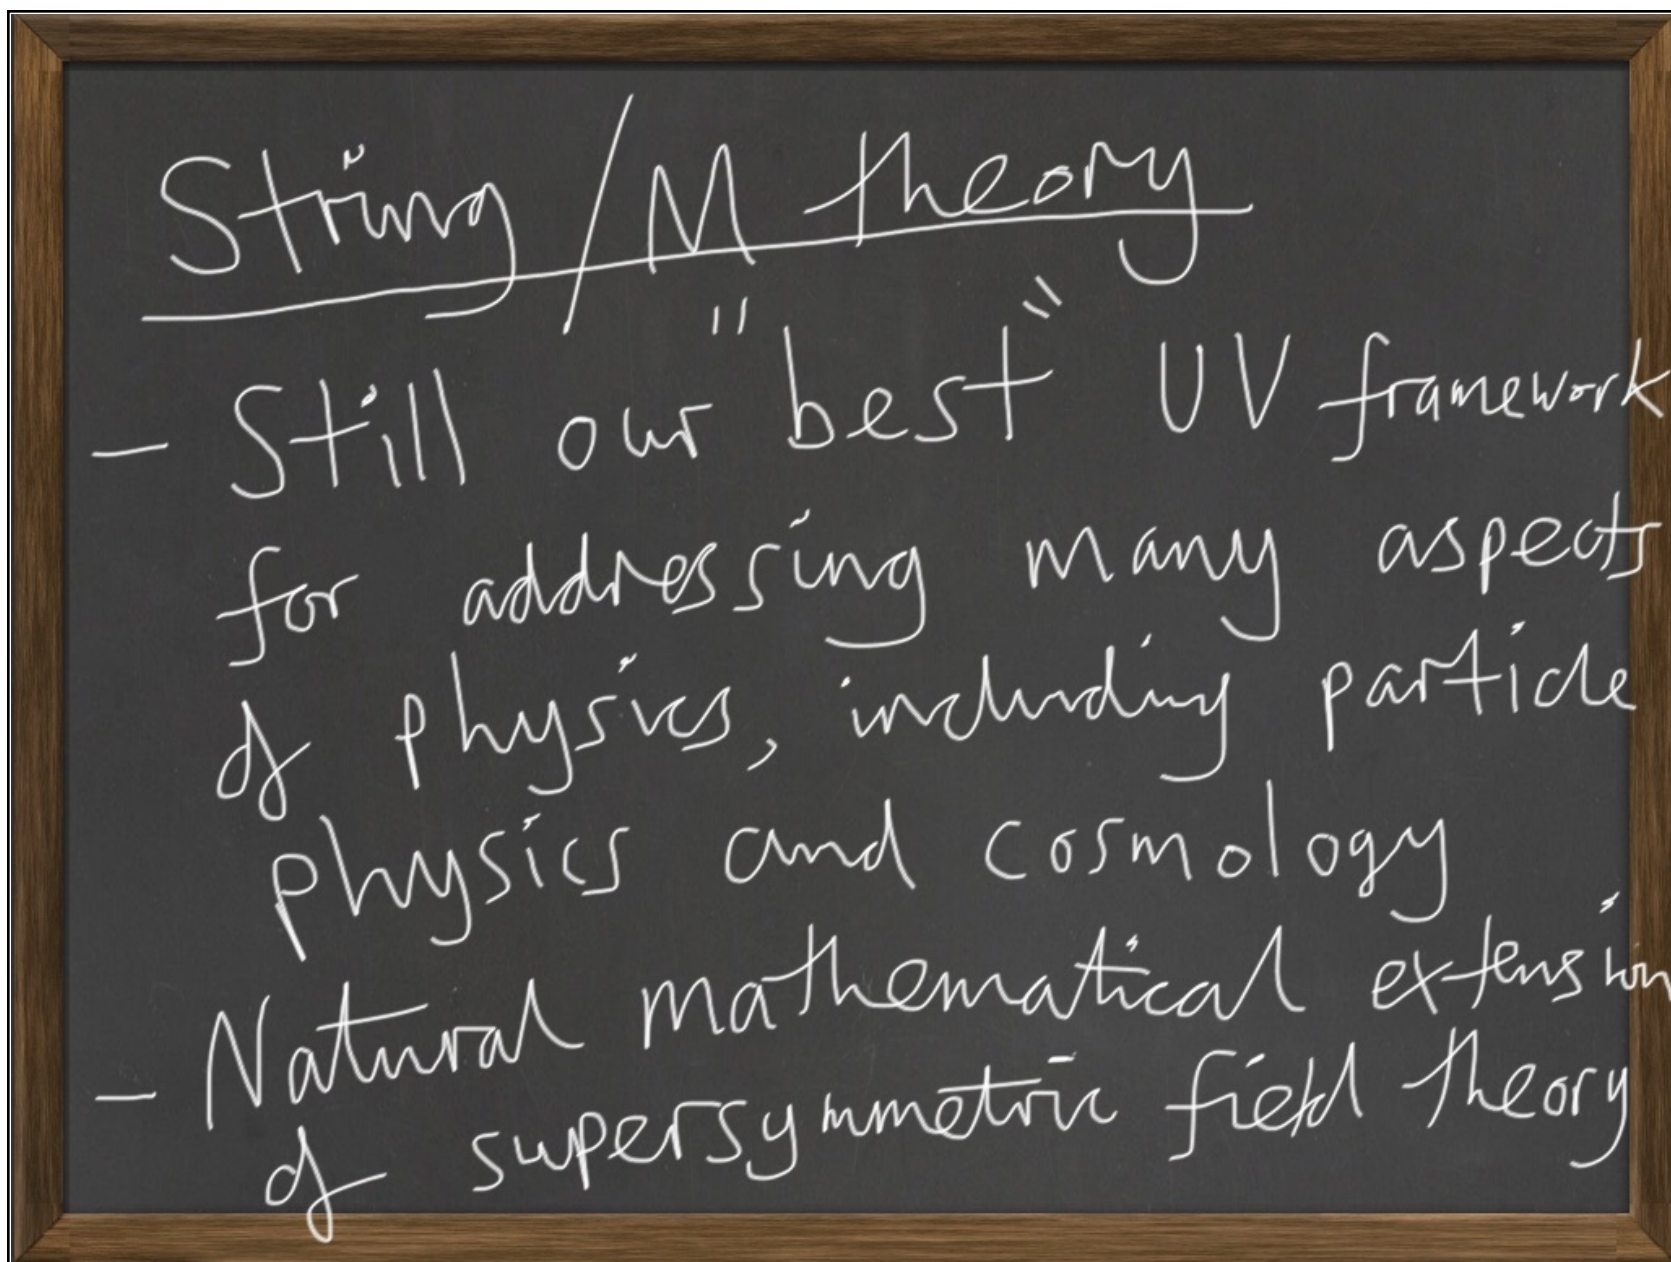 String / M theory
- Still our "best" UV framework
for addressing many aspects
of physics, including particle
physics and cosmology
- Natural mathematical extension
of supersymmetric field theory